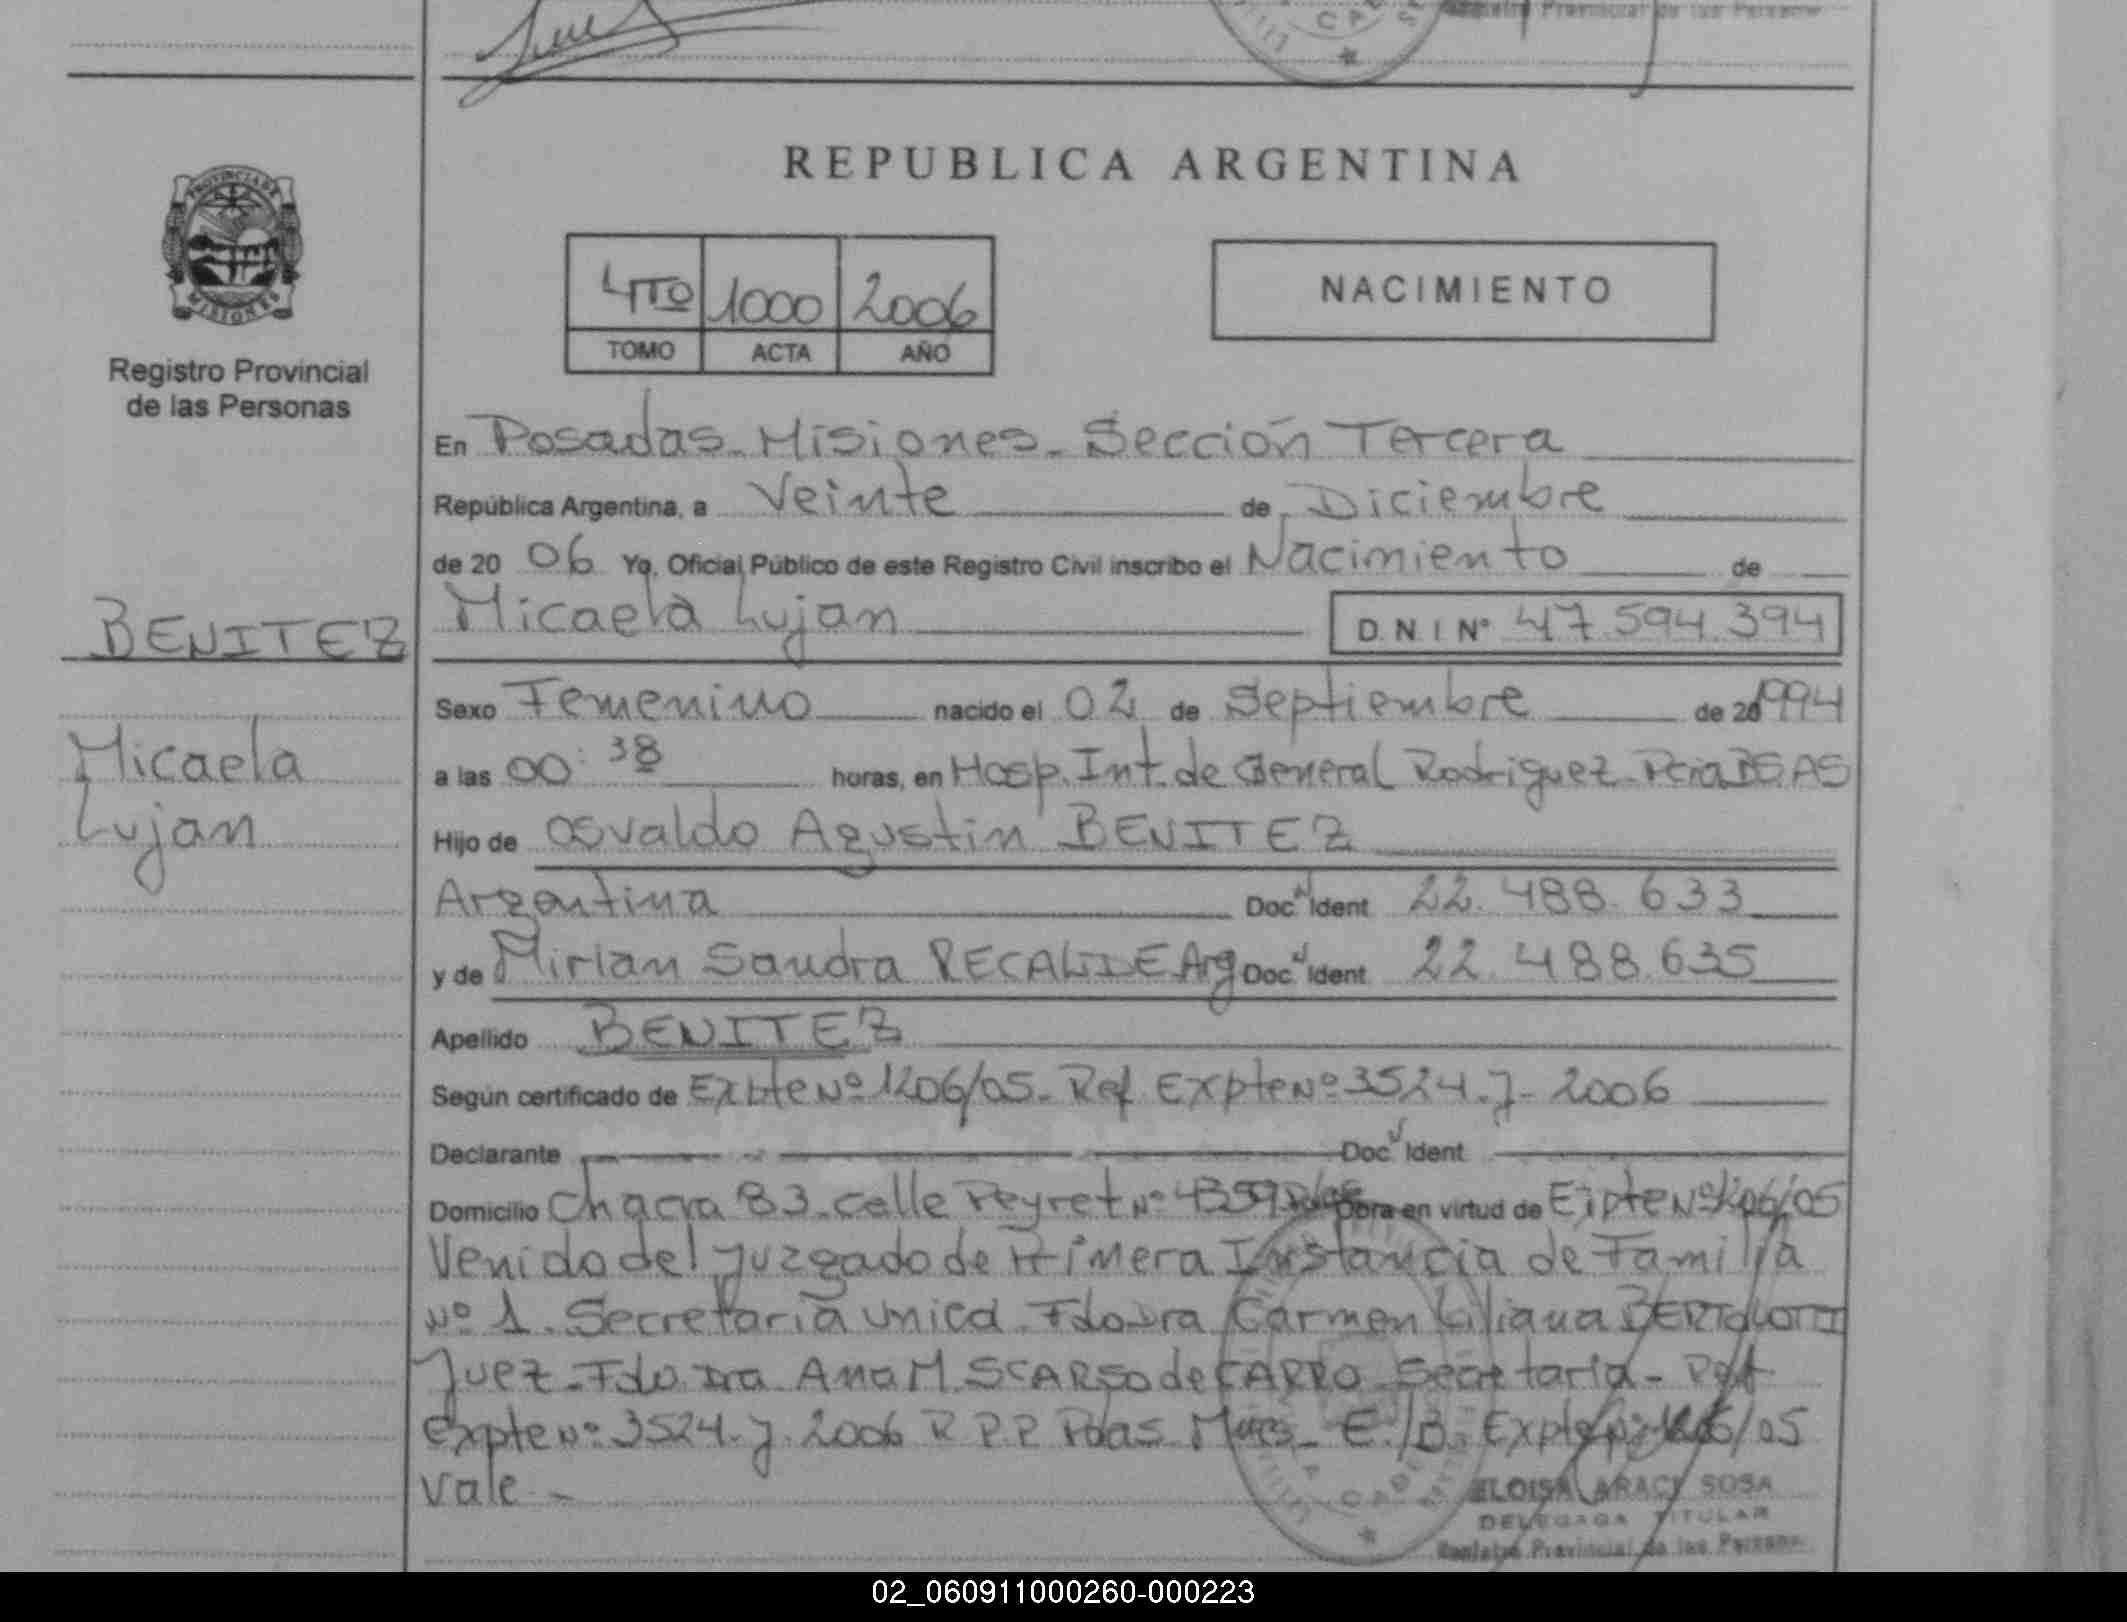 Registro Provincial de las Persona
REPUBLICA ARGENTINA
PROVINCIA DE
MISIONES
Registro Provincial
de las Personas
4TO 1000 2006
TOMO ACTA AÑO
NACIMIENTO
En Posadas - Misiones - Sección Tercera
República Argentina, a Veinte de Diciembre
de 20 06 Yo, Oficial Público de este Registro Civil inscribo el Nacimiento de
BENITEZ
Micaela Lujan D N I Nº 47.594.394
Sexo Femenino nacido el 02 de Septiembre de 20 1994
Micaela
Lujan
a las 00:38 horas, en Hosp. Int. de General Rodriguez - Pcia BS.AS
Hijo de Osvaldo Agustin BENITEZ
Argentina Doc Ident 22.488.633
y de Mirian Sandra RECALDE Arg Doc Ident 22.488.635
Apellido BENITEZ
Según certificado de Expte Nº 1206/05 - Ref. Expte Nº 3524-J-2006
Declarante Doc Ident
Domicilio Chacra 83 - calle Peyret Nº 4359 Obra en virtud de Expte Nº 1206/05
Venido del Juzgado de Primera Instancia de Familia
Nº 1 - Secretaria unica - Fdo Dra Carmen Liliana BERTOLOTTI
Juez - Fdo Dra Ana M. SCARSO de FARRO Secretaria - Ref
Expte Nº 3524-J-2006 R.P.P. Pdas Mnes - E./B. Expte Nº 1206/05
Vale -
ELOISA ARACI SOSA
DELEGADA TITULAR
Registro Provincial de las Persona
02_060911000260-000223